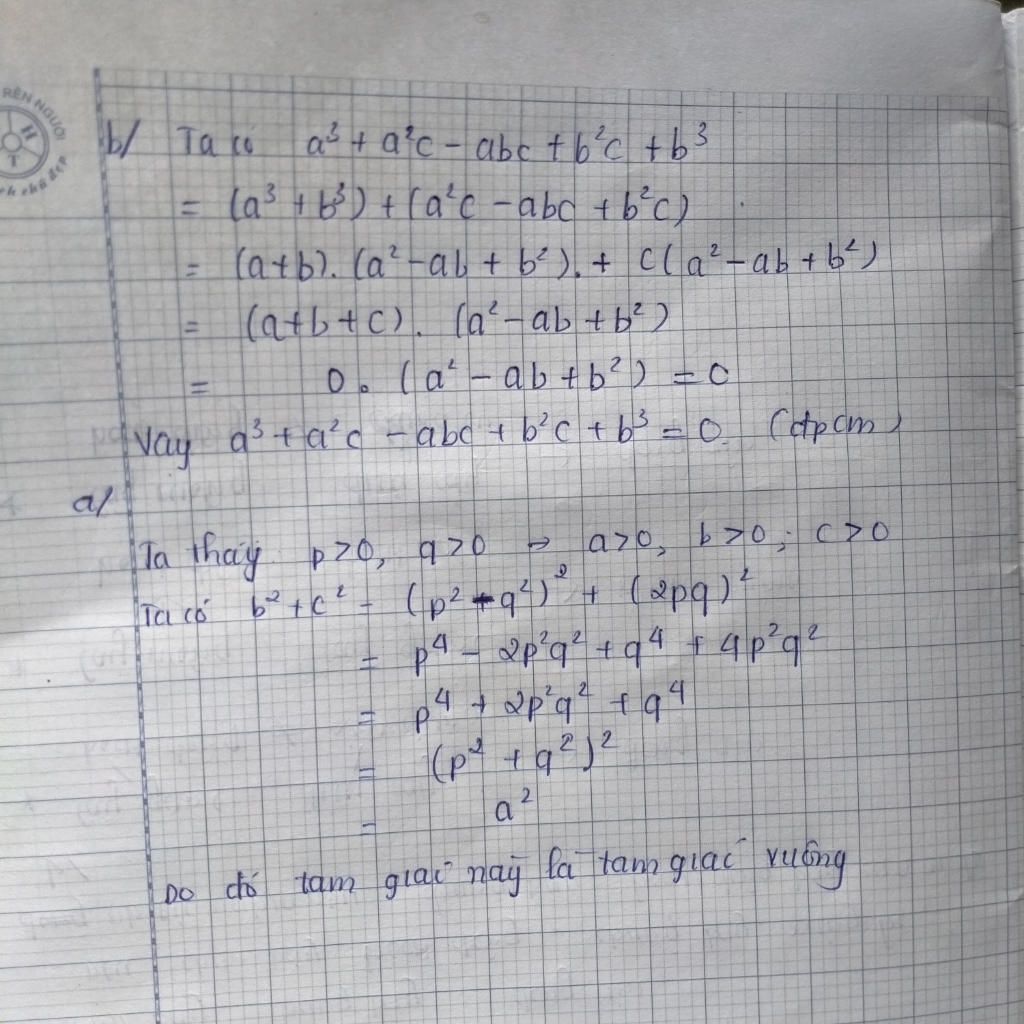 RÈN NGƯỜI
H
T
b/ Ta có a³ + a²c - abc + b²c + b³
= (a³ + b³) + (a²c - abc + b²c)
= (a+b). (a² - ab + b²). + c(a² - ab + b²)
= (a+b+c). (a² - ab + b²)
= 0. (a² - ab + b²) = 0
Vậy a³ + a²c - abc + b²c + b³ = 0 (đpcm)
a/
Ta thấy p>0, q>0 → a>0, b>0; c>0
Ta có b² + c² = (p² - q²)² + (2pq)²
= p⁴ - 2p²q² + q⁴ + 4p²q²
= p⁴ + 2p²q² + q⁴
= (p² + q²)²
= a²
Do đó tam giác này là tam giác vuông